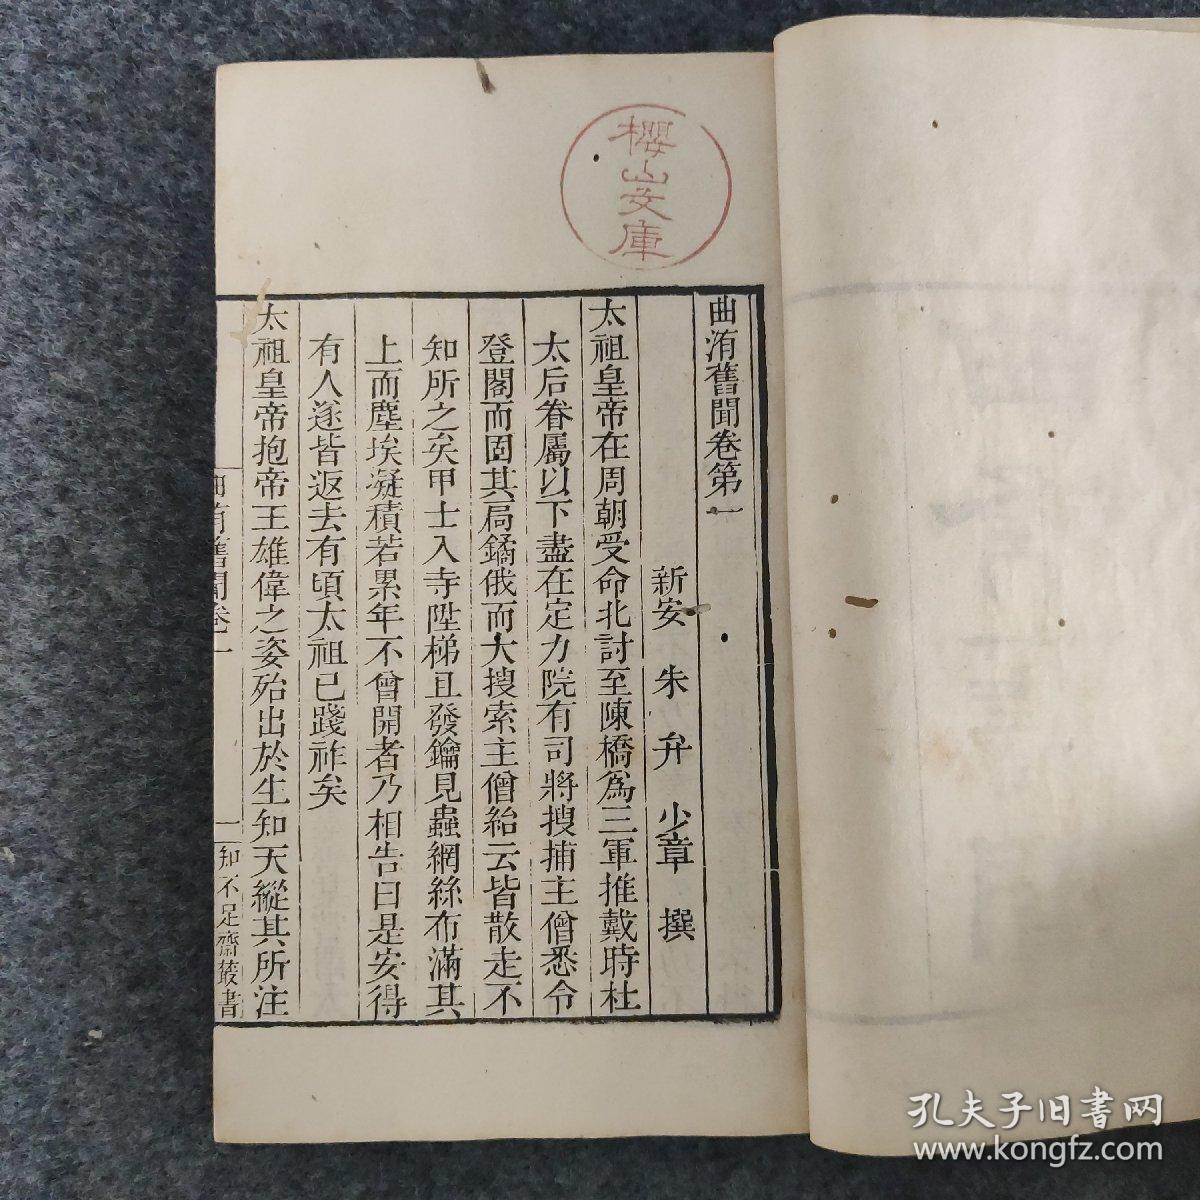 櫻山文庫
曲洧舊聞卷第一
新安 朱弁 少章 撰
太祖皇帝在周朝受命北討至陳橋爲三軍推戴時杜
太后眷屬以下盡在定力院有司將搜捕主僧悉令
登閣而固其扃鐍俄而大搜索主僧紿云皆散走不
知所之矣甲士入寺陞梯且發鑰見蟲網絲布滿其
上而塵埃凝積若累年不曾開者乃相告曰是安得
有人遂皆返去有頃太祖已踐祚矣
太祖皇帝抱帝王雄偉之姿殆出於生知天縱其所注
曲洧舊聞卷一
一
知不足齋叢書
孔夫子旧书网
www.kongfz.com